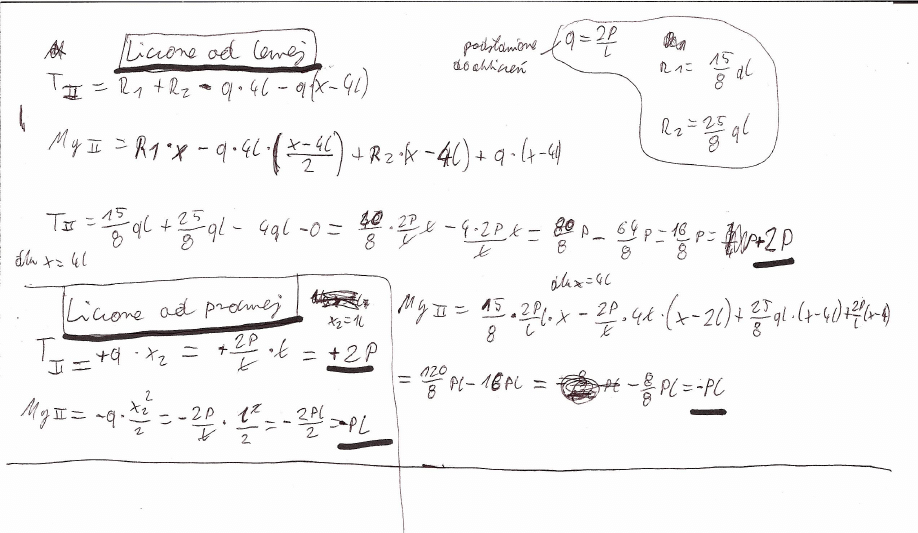 Liczone od lewej
podstawione do obliczeń
q = 2P/l
R1 = 15/8 ql
R2 = 25/8 ql
T II = R1 + R2 - q·4l - q(x-4l)
Mg II = R1·x - q·4l·((x-4l)/2) + R2·(x-4l) + q·(x-4l)
T II = 15/8 ql + 25/8 ql - 4ql - 0 = 40/8 · 2P/l l - 4·2P/l l = 80/8 P - 64/8 P = 16/8 P = +2P
dla x=4l
Liczone od prawej
x2=1l
T II = +q·x2 = +2P/l·l = +2P
Mg II = -q·x2²/2 = -2P/l · l²/2 = -2Pl/2 = -Pl
dla x=4l
Mg II = 15/8 · 2P/l l·x - 2P/l · 4l·(x-2l) + 25/8 ql·(x-4l) + 2P/l (x-4)
= 120/8 Pl - 16Pl = -8/8 Pl = -Pl